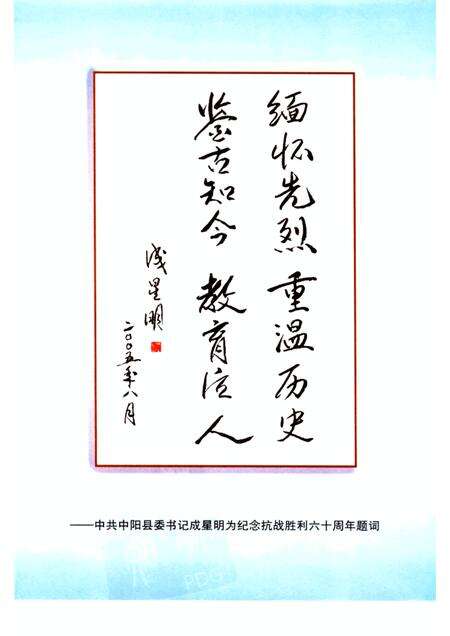 缅怀先烈 重温历史
鉴古知今 教育後人
成星明
二〇〇五年八月
——中共中阳县委书记成星明为纪念抗战胜利六十周年题词